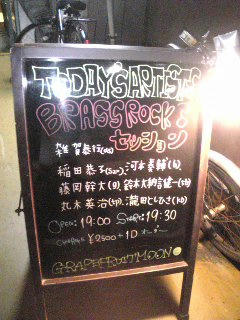 TODAY'S ARTISTS
BRASSROCK'S
セッション
雑賀恭行
稲田恭子(sax) 河本奏輔(b)
藤岡幹大(g) 鈴木大納言健一(tb)
丸木英治(tp) 瀧田としひさ(k)
OPEN: 19:00 START: 19:30
CHARGE ¥2500+1Dオーダー
GRAPEFRUITMOON